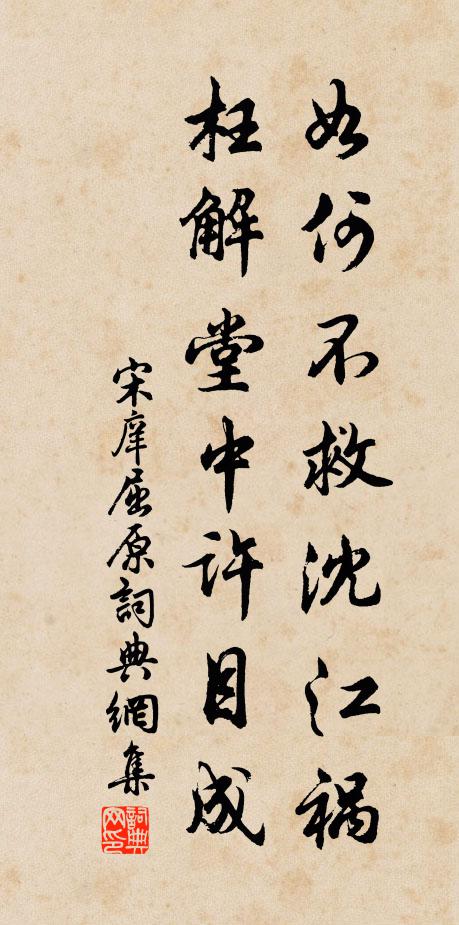 如何不救沈江祸
枉解堂中許目成
宋庠屈原詞典網集
詞典網印